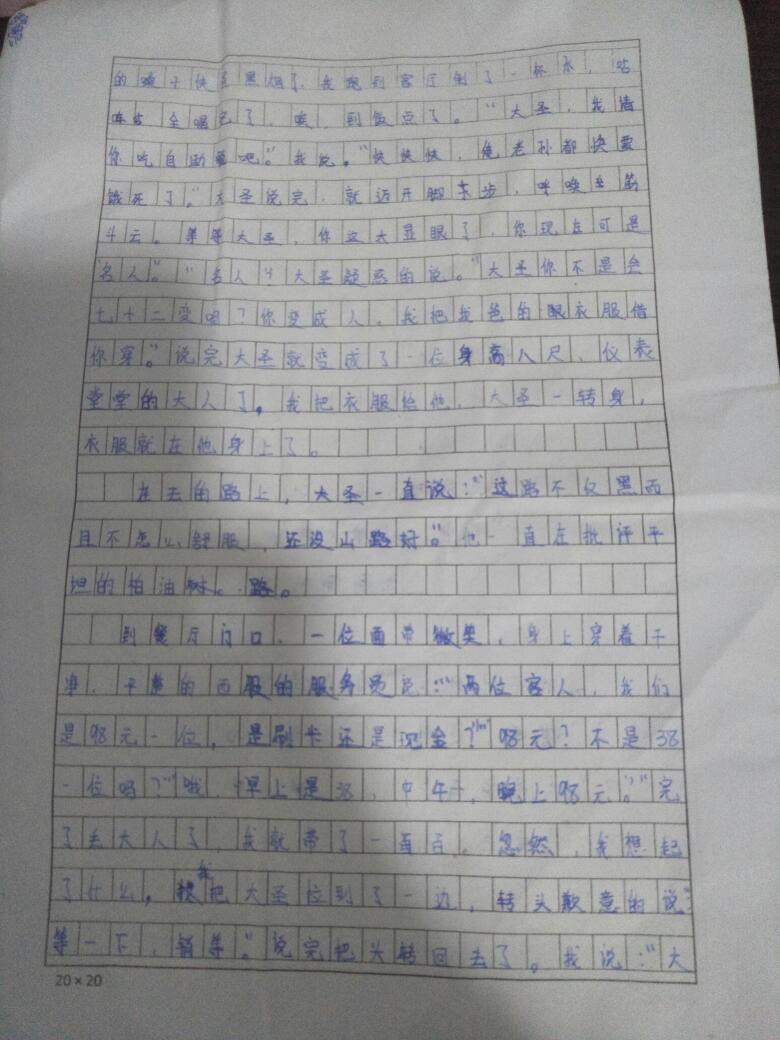 的嗓子快冒黑烟了，我跑到客厅倒了一杯水，咕
咚咕全喝完了，唉，到饭点了。“大圣，我请
你吃自助餐吧。”我说。“快快快，俺老孙都快要
饿死了。”大圣说完，就迈开脚步，呼唤出筋
斗云。等等大圣，你这太显眼了，你现在可是
名人。”“名人？”大圣疑惑的说。“大圣你不是会
七十二变吗？你变成人，我把我爸的衣服借
你穿。”说完大圣就变成了一位身高八尺、仪表
堂堂的大人了。我把衣服给他，大圣一转身，
衣服就在他身上了。
在去的路上，大圣一直说：“这路不仅黑而
且不怎么舒服，还没山路好。”他一直在批评平
坦的柏油路。
到餐厅门口，一位面带微笑，身上穿着干
净、平整的西服的服务员说：“两位客人，我们
是98元一位，是刷卡还是现金？”“98元？不是38
一位吗？”“哦，早上是38，中午，晚上98元。”“完
了去大人了，我就带了一百。忽然，我想起
了什么，我把大圣拉到了一边，转头歉意的说：“
等一下，稍等。”说完把头转回去了。我说：“大
20×20